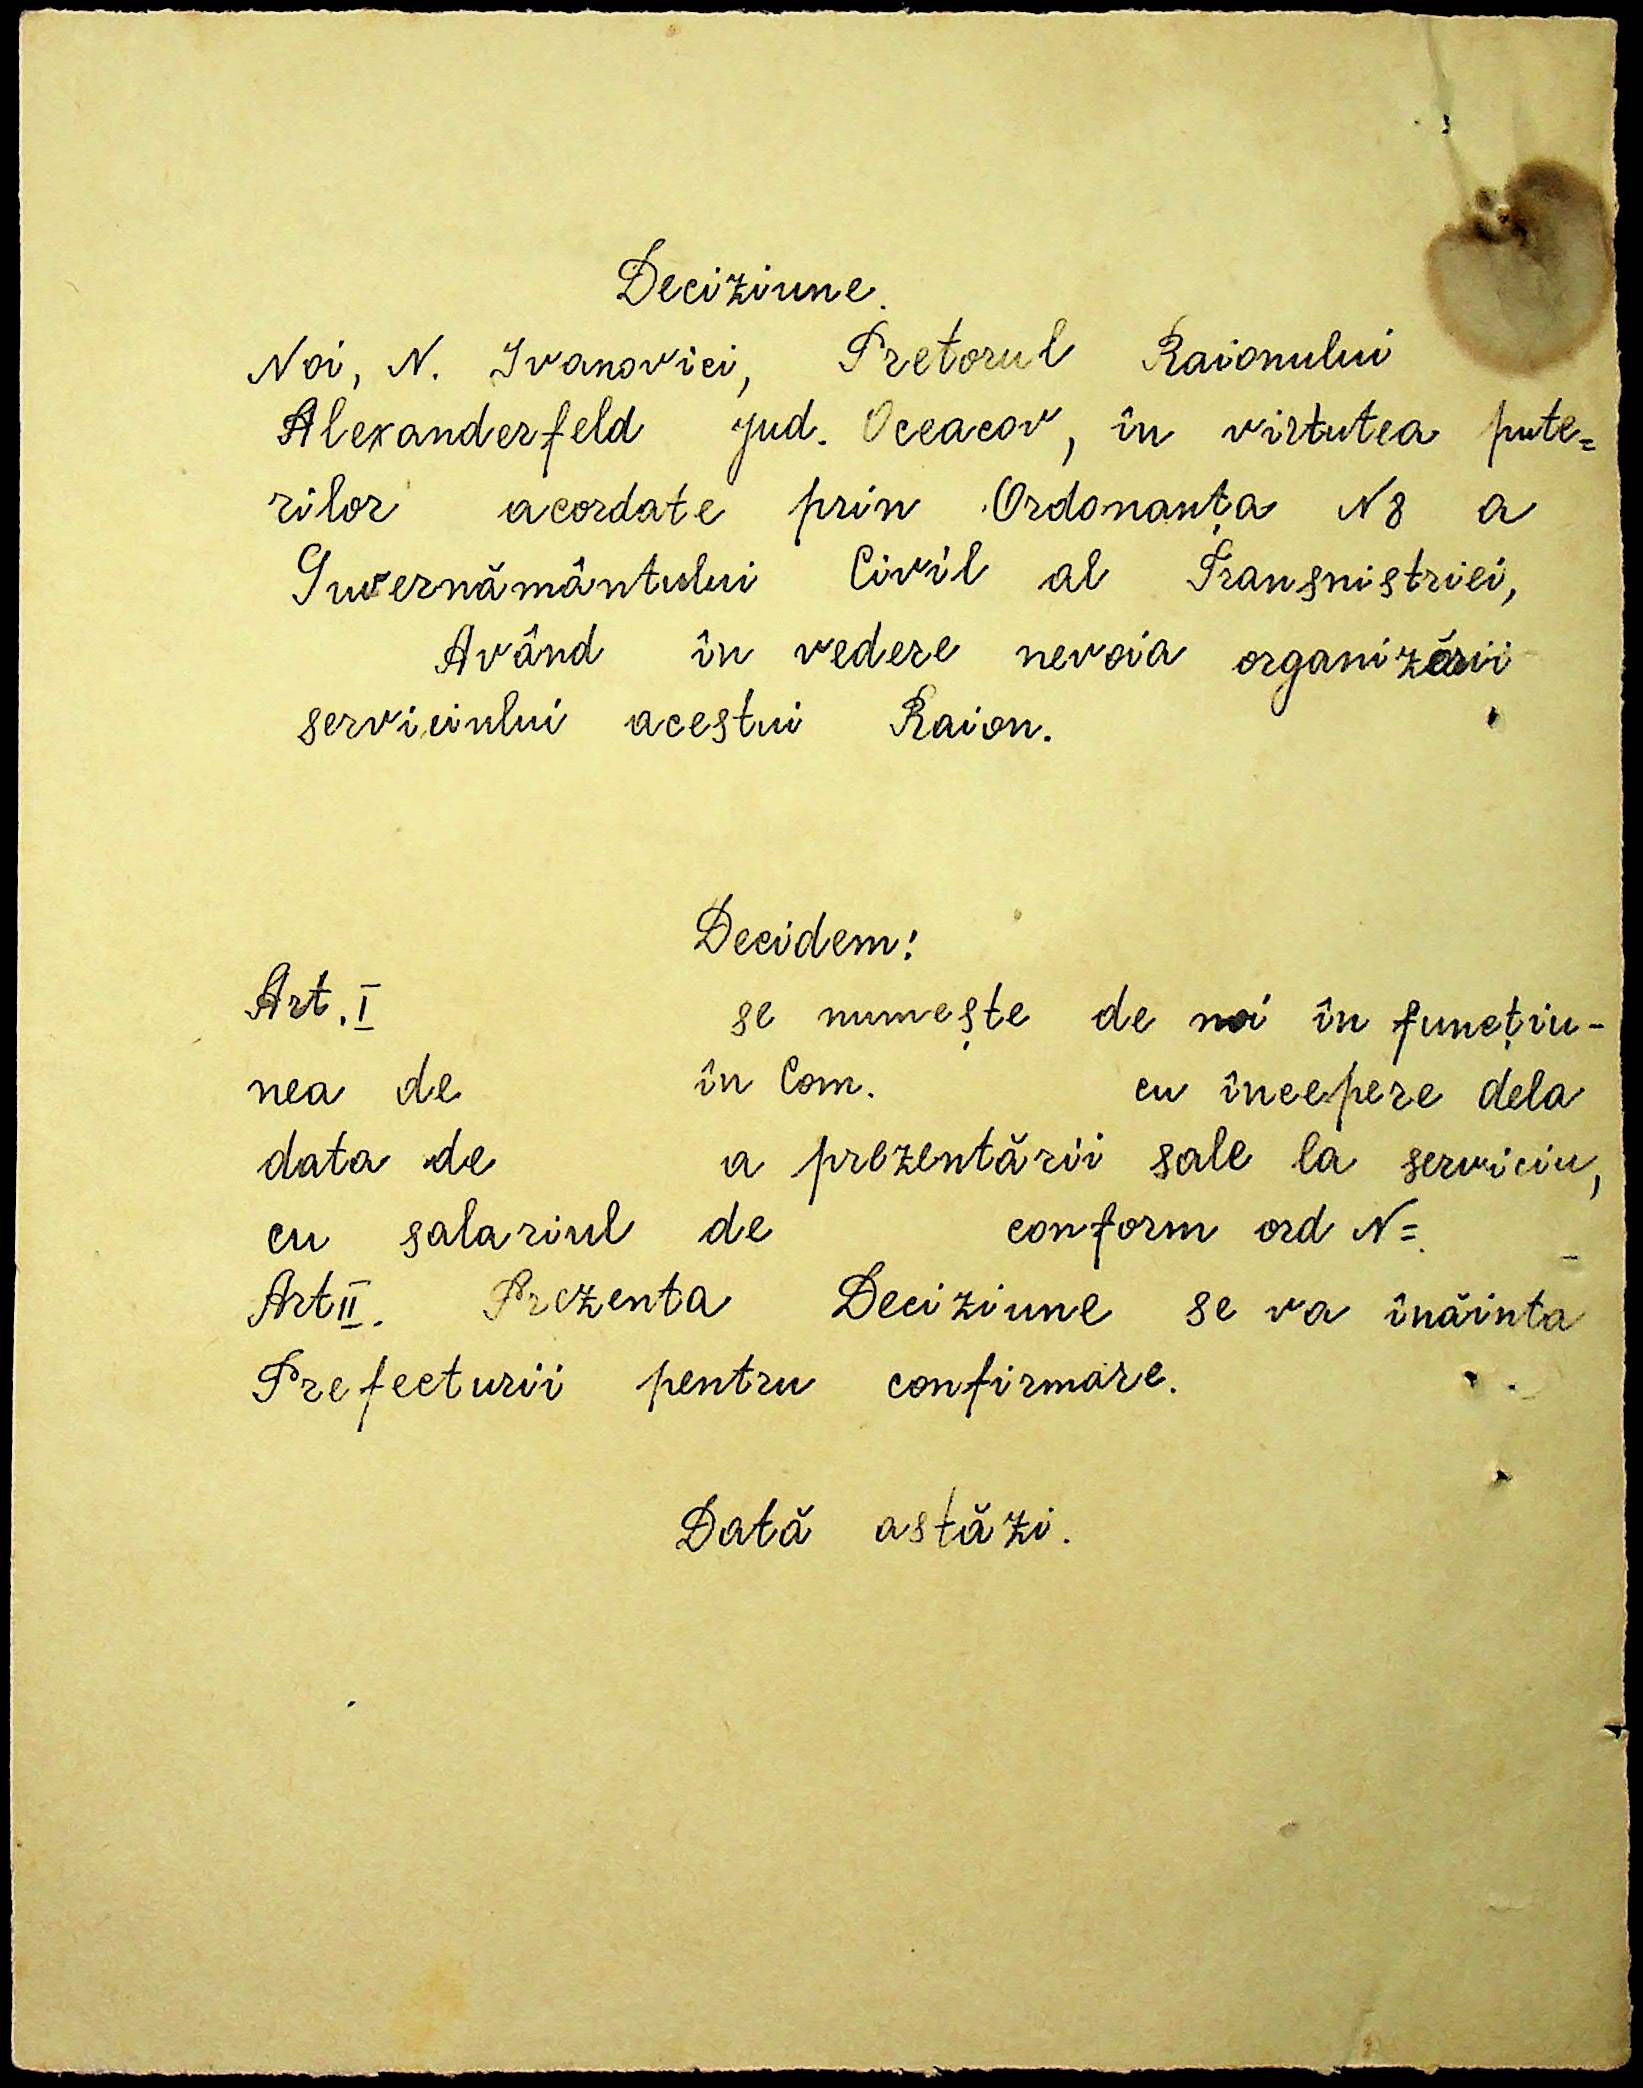 Deciziune.
Noi, N. Ivanovici, Pretorul Raionului
Alexanderfeld jud. Oceacov, în virtutea pute=
rilor acordate prin Ordonanța N8 a
Guvernământului Civil al Transnistriei,
Având în vedere nevoia organizării
serviciului acestui Raion.
Decidem:
Art. I se numește de noi în funcțiu-
nea de în Com. cu începere dela
data de a prezentării sale la serviciu,
cu salariul de conform ord N=
Art II. Prezenta Deciziune se va înăinta
Prefecturii pentru confirmare.
Dată astăzi.